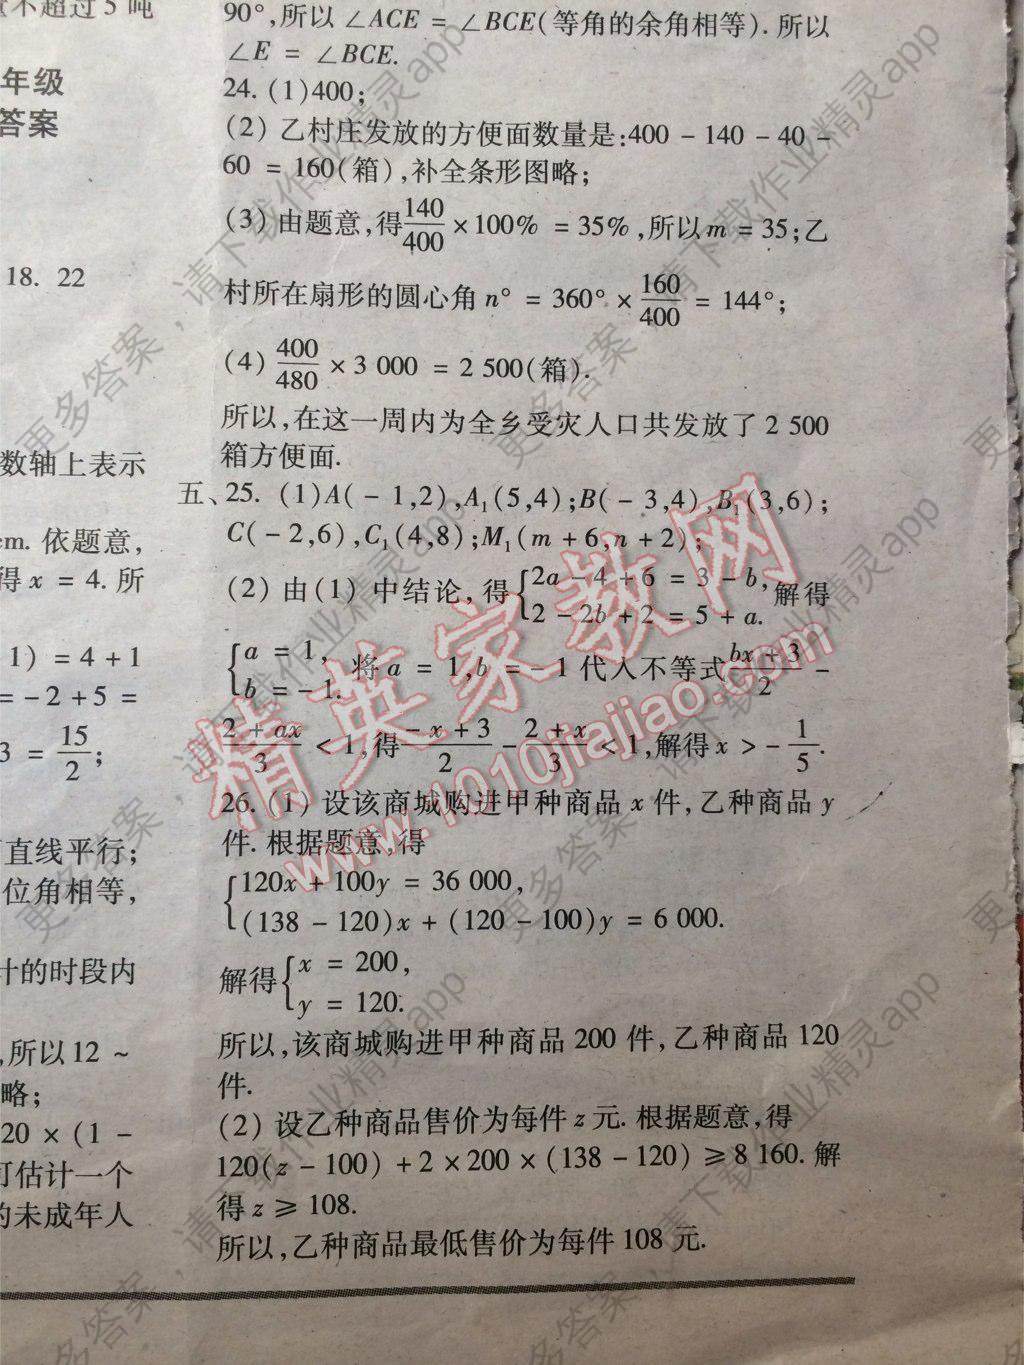 量不超过5吨
年级
答案
18. 22
数轴上表示
cm. 依题意,
得x = 4. 所
1) = 4 + 1
= -2 + 5 =
3 = 15/2;
直线平行;
位角相等,
计的时段内
,所以12 ~
略;
20 × (1 -
可估计一个
的未成年人
90°,所以∠ACE = ∠BCE(等角的余角相等). 所以
∠E = ∠BCE.
24. (1)400;
(2) 乙村庄发放的方便面数量是:400 - 140 - 40 -
60 = 160(箱),补全条形图略;
(3) 由题意,得140/400 × 100% = 35%,所以m = 35;乙
村所在扇形的圆心角n° = 360° × 160/400 = 144°;
(4) 400/480 × 3 000 = 2 500(箱).
所以,在这一周内为全乡受灾人口共发放了2 500
箱方便面.
五、25. (1)A( - 1,2),A₁(5,4);B( - 3,4),B₁(3,6);
C( - 2,6),C₁(4,8);M₁(m + 6,n + 2);
(2) 由(1) 中结论,得{2a - 4 + 6 = 3 - b, 2 - 2b + 2 = 5 + a. 解得
{a = 1, b = - 1. 将a = 1,b = - 1代入不等式 (bx + 3)/2 -
(2 + ax)/3 < 1,得(-x + 3)/2 - (2 + x)/3 < 1,解得x > - 1/5.
26. (1) 设该商城购进甲种商品x件,乙种商品y
件. 根据题意,得
{120x + 100y = 36 000,
(138 - 120)x + (120 - 100)y = 6 000.
解得{x = 200,
y = 120.
所以,该商城购进甲种商品200件,乙种商品120
件.
(2) 设乙种商品售价为每件z元. 根据题意,得
120(z - 100) + 2 × 200 × (138 - 120) ≥ 8 160. 解
得z ≥ 108.
所以,乙种商品最低售价为每件108元.
精英家教网
www.1010jiajiao.com
更多答案,请下载作业精灵app